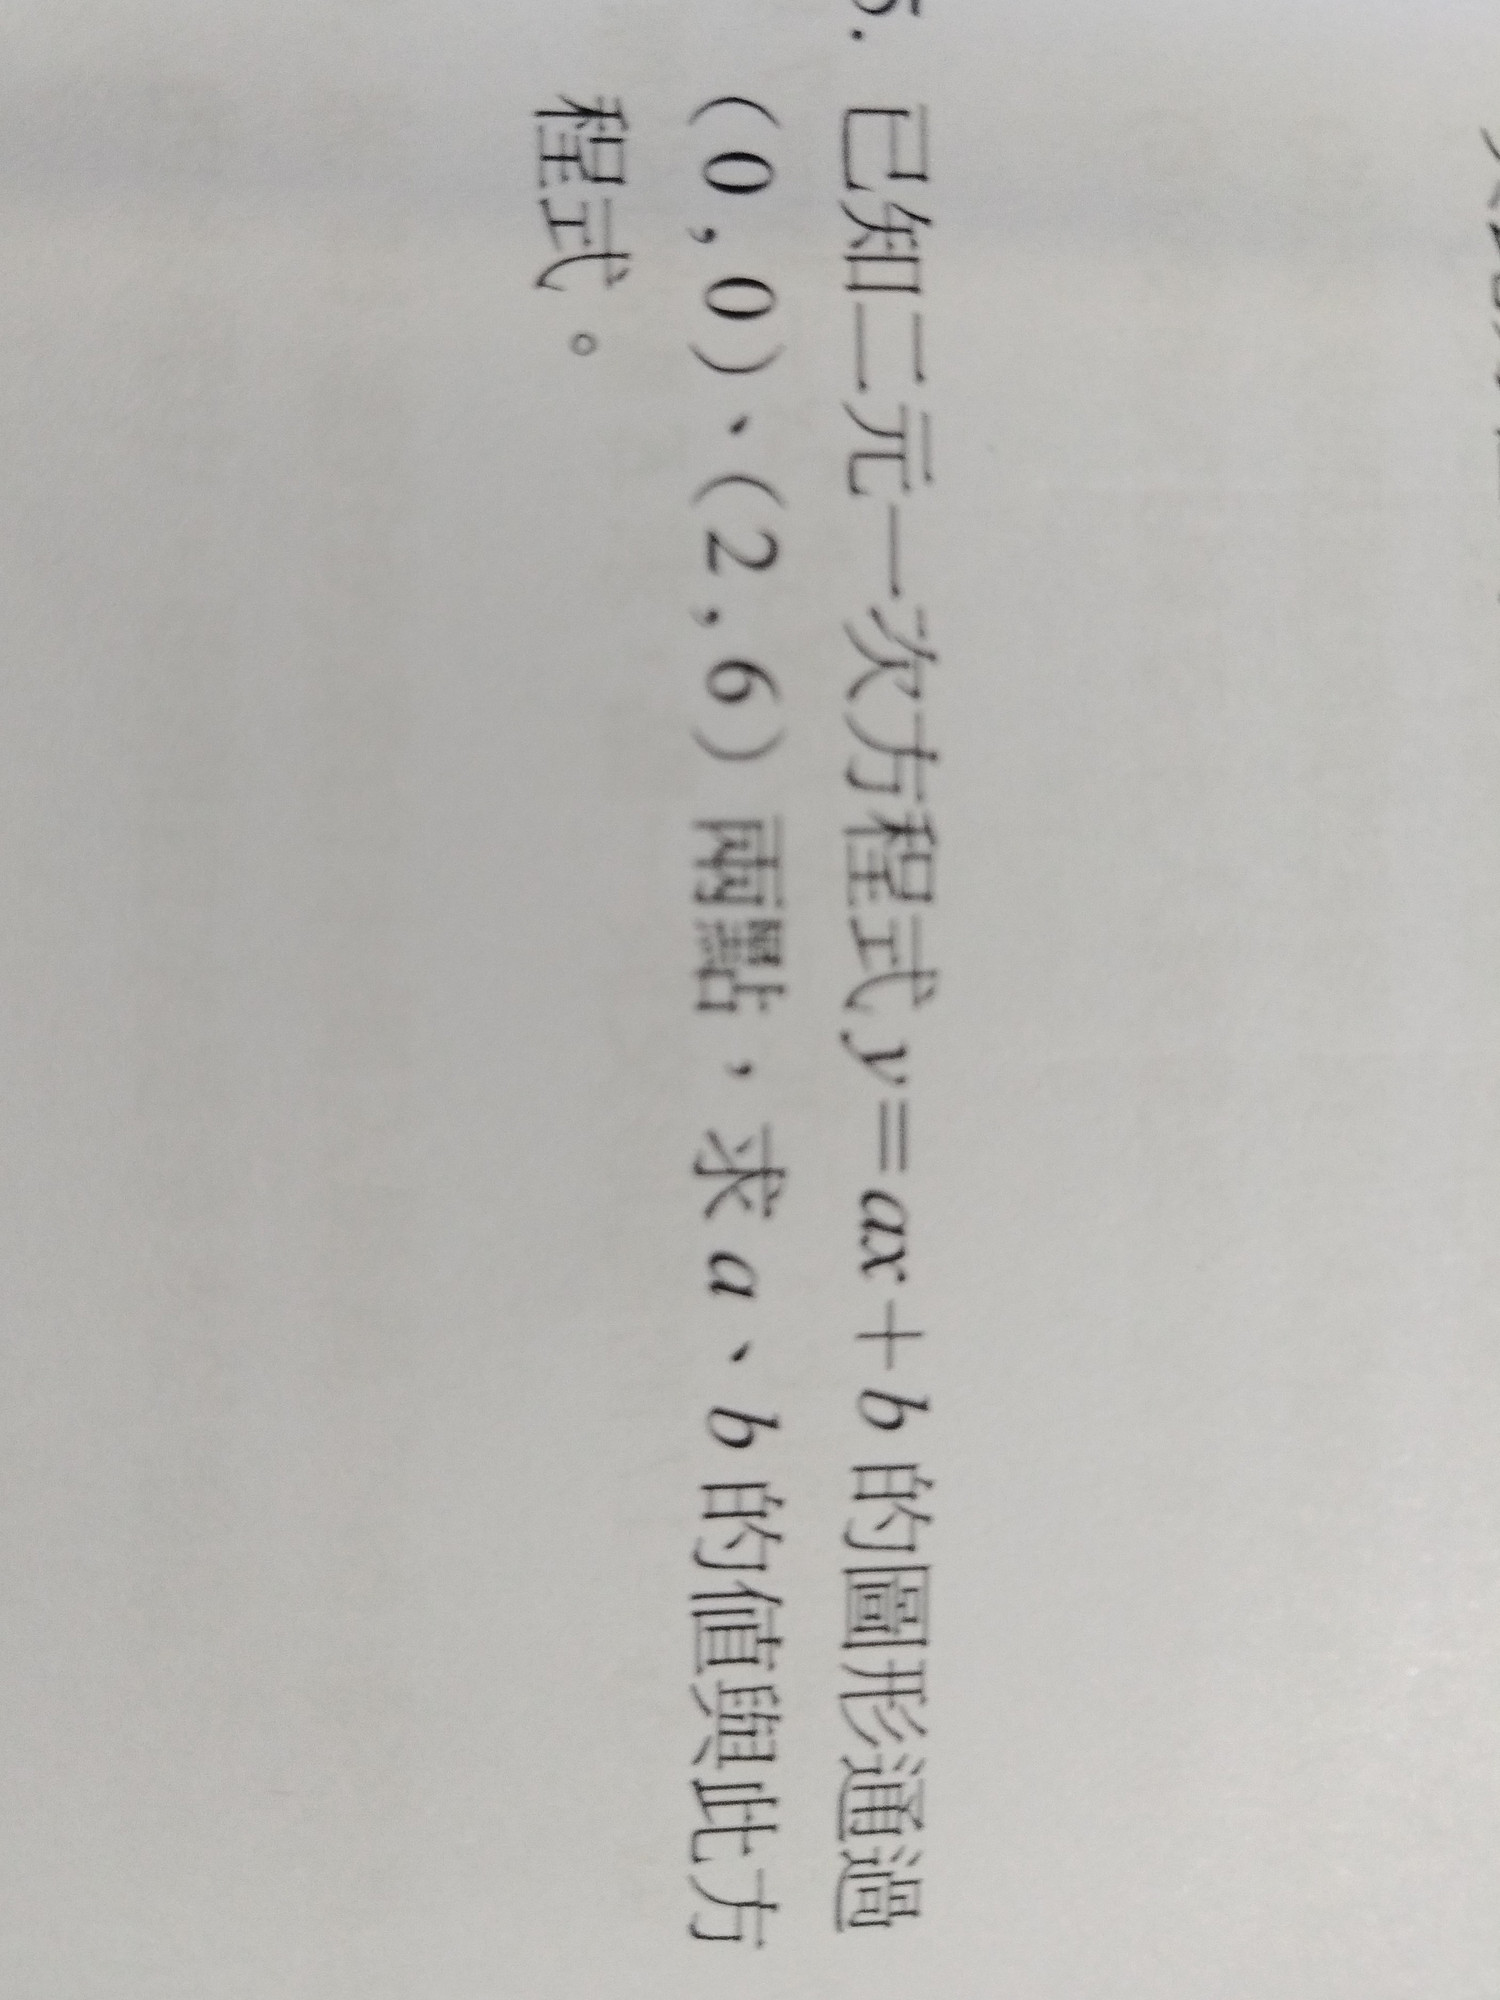 5. 已知二元一次方程式 y=ax+b 的圖形通過
(0,0)、(2,6)兩點,求 a、b 的值與此方
程式。